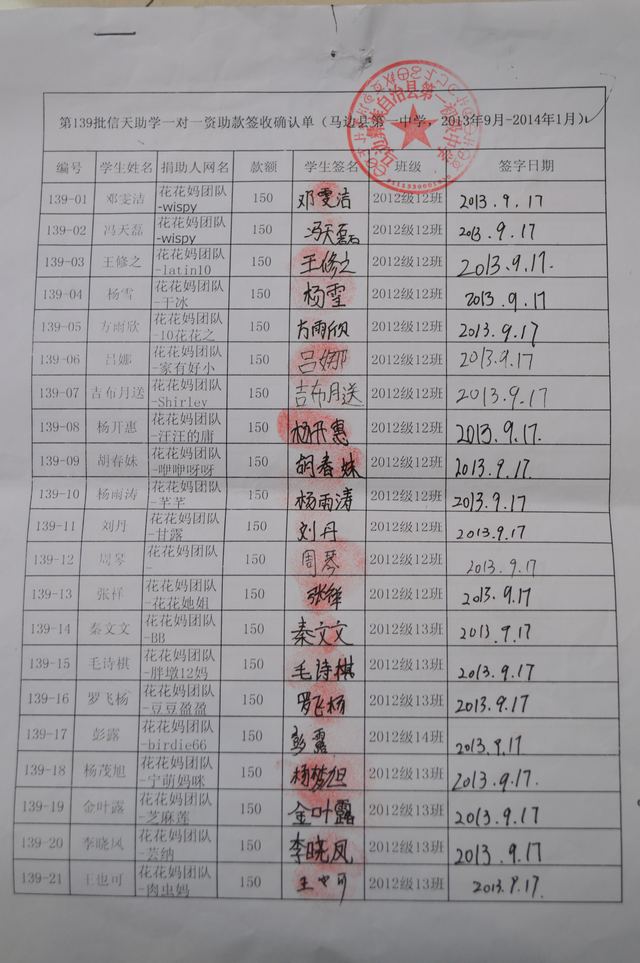 第139批信天助学一对一资助款签收确认单（马边县第一中学，2013年9月-2014年1月）
编号 学生姓名 捐助人网名 款额 学生签名 班级 签字日期
139-01 邓雯洁 花花妈团队-wispy 150 邓雯洁 2012级12班 2013.9.17
139-02 冯天磊 花花妈团队-wispy 150 冯天磊 2012级12班 2013.9.17
139-03 王修之 花花妈团队-latin10 150 王修之 2012级12班 2013.9.17.
139-04 杨雪 花花妈团队-干冰 150 杨雪 2012级12班 2013.9.17
139-05 方雨欣 花花妈团队-10花花之 150 方雨欣 2012级12班 2013.9.17
139-06 吕娜 花花妈团队-家有好小 150 吕娜 2012级12班 2013.9.17
139-07 吉布月送 花花妈团队-Shirley 150 吉布月送 2012级12班 2013.9.17
139-08 杨开惠 花花妈团队-汪汪的庸 150 杨开惠 2012级12班 2013.9.17.
139-09 胡春妹 花花妈团队-咿咿呀呀 150 胡春妹 2012级12班 2013.9.17.
139-10 杨雨涛 花花妈团队-芊芊 150 杨雨涛 2012级12班 2013.9.17
139-11 刘丹 花花妈团队-甘露 150 刘丹 2012级12班 2013.9.17
139-12 周琴 花花妈团队- 150 周琴 2012级12班 2013.9.17
139-13 张祥 花花妈团队-花花她姐 150 张祥 2012级12班 2013.9.17
139-14 秦文文 花花妈团队-BB 150 秦文文 2012级13班 2013.9.17
139-15 毛诗棋 花花妈团队-胖墩12妈 150 毛诗棋 2012级13班 2013.9.17
139-16 罗飞杨 花花妈团队-豆豆盈盈 150 罗飞杨 2012级13班 2013.9.17
139-17 彭露 花花妈团队-birdie66 150 彭露 2012级14班 2013.9.17
139-18 杨茂旭 花花妈团队-宁萌妈咪 150 杨梦旭 2012级13班 2013.9.17
139-19 金叶露 花花妈团队-芝麻莲 150 金叶露 2012级13班 2013.9.17
139-20 李晓凤 花花妈团队-芸纳 150 李晓凤 2012级13班 2013.9.17
139-21 王也可 花花妈团队-肉虫妈 150 王也可 2012级13班 2013.9.17.